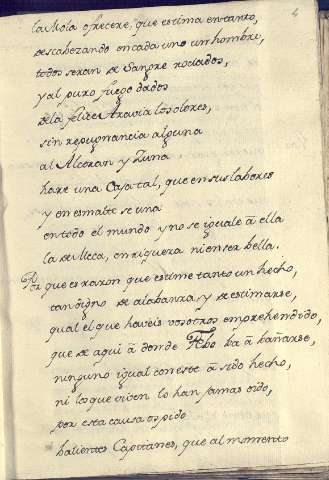 4
la Mola ofrecere, que estima entanto,
descabezando encada uno un hombre,
todos seran de Sangre rociados,
y al puro fuego dados
dela felice Aravia losolores,
sin repugnancia alguna
al Alcoran y Zuna
hare una Casa tal, que en sus labores
y en esmalte se una
entodo el mundo y no se iguale à ella
la de Meca, en riquera ni en ser bella.
Por que es raxon que estime tanto un hecho,
tan digno de alabanza, y de estimarse,
qual el que haveis vosotros emprehendido,
que de aqui à donde Febo ba à bañarse,
ninguno igual con este à sido hecho,
ni los que viven lo han jamas oido,
por esta causa os pido
balientes Capitanes, que al momento